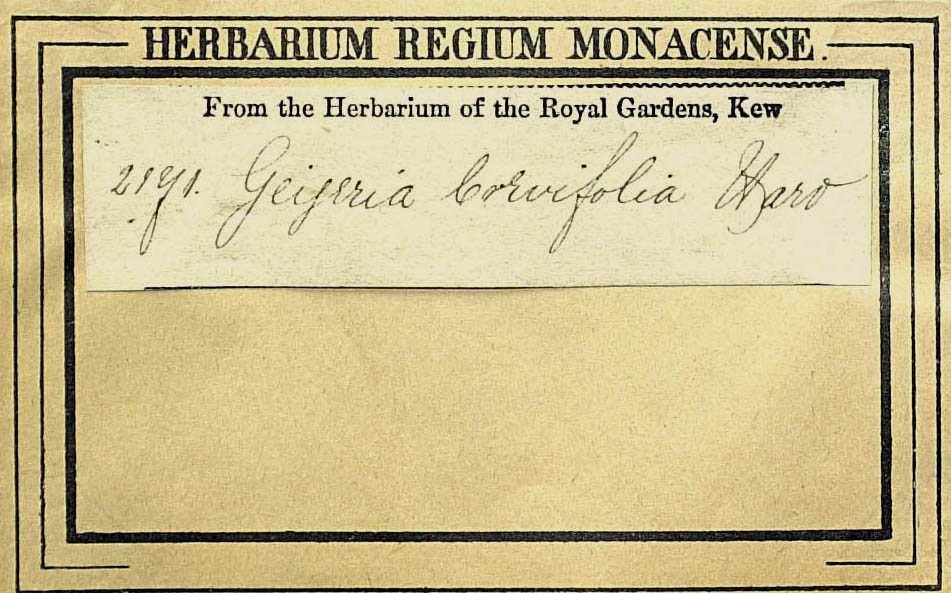 HERBARIUM REGIUM MONACENSE.
From the Herbarium of the Royal Gardens, Kew
2171. Geigeria brevifolia Harv